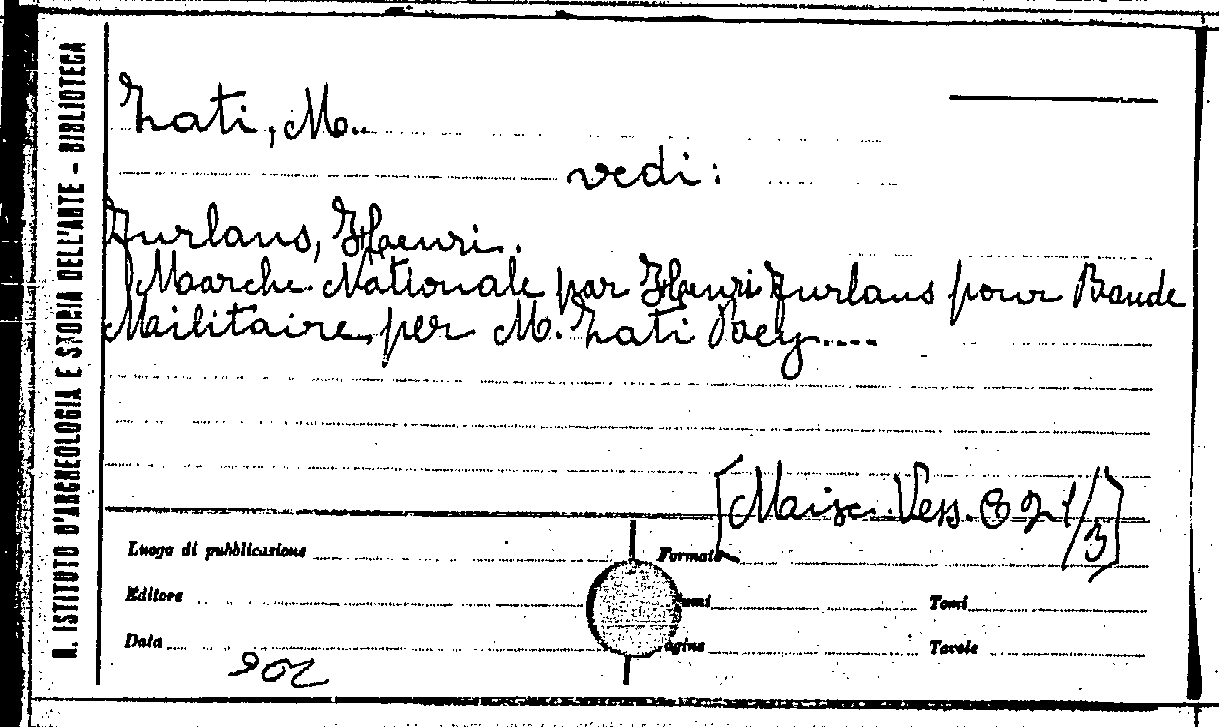 R. ISTITUTO D'ARCHEOLOGIA E STORIA DELL'ARTE - BIBLIOTECA
Zati, M..
vedi:
Furlans, Henri.
Marche Nationale par Henri Furlans pour Bande
Militaire, per M. Zati Bey....
[Misc. Vess. 821/3]
Luogo di pubblicazione
Formato
Editore
Tomi
Data
Tavole